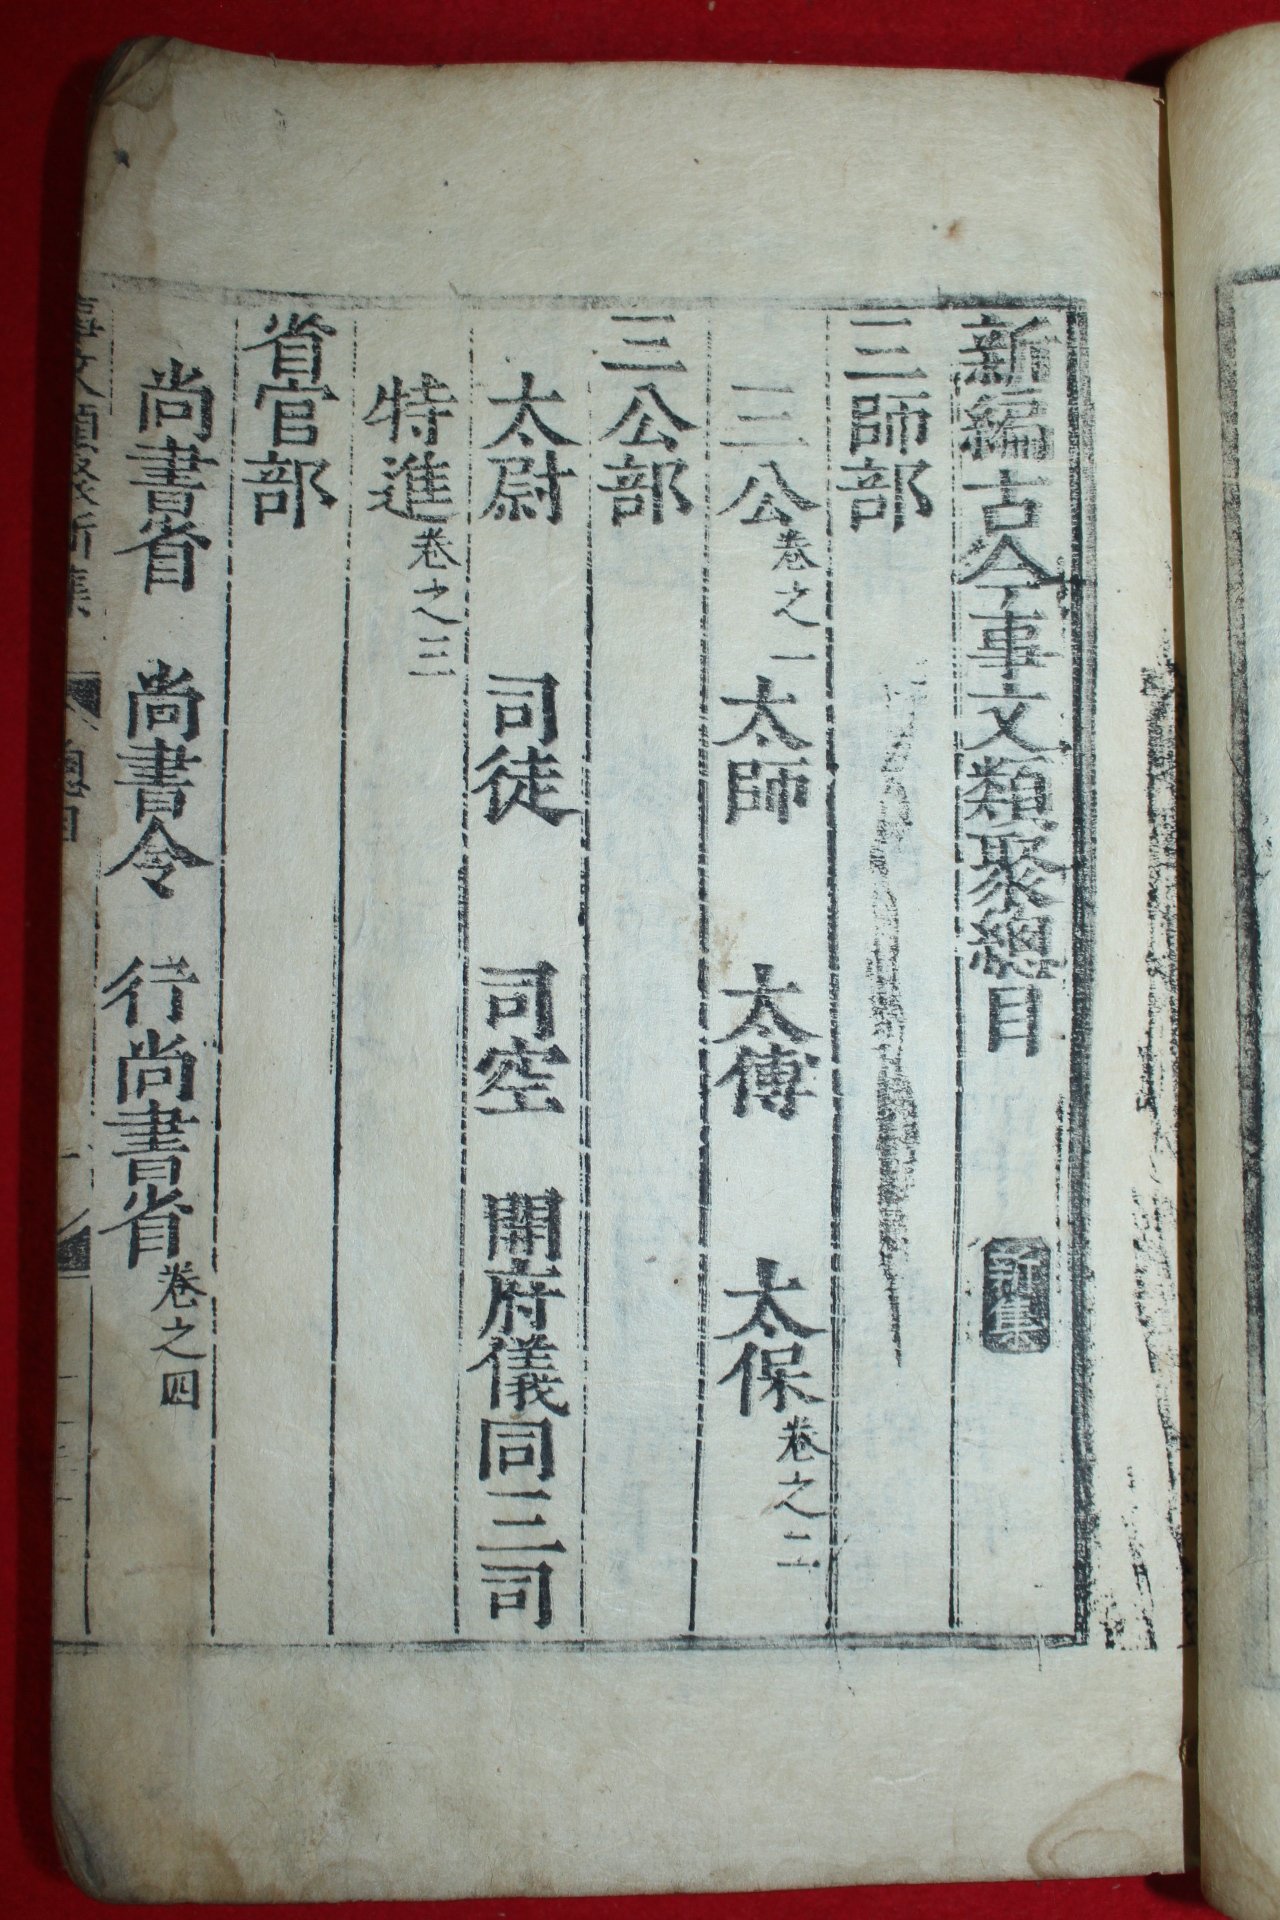 新編古今事文類聚總目 新集
三師部
三公卷之一 太師 太傅 太保卷之二
三公部
太尉 司徒 司空 開府儀同三司
特進卷之三
省官部
尚書省 尚書令 行尚書省卷之四
事文類聚新集 總目 一